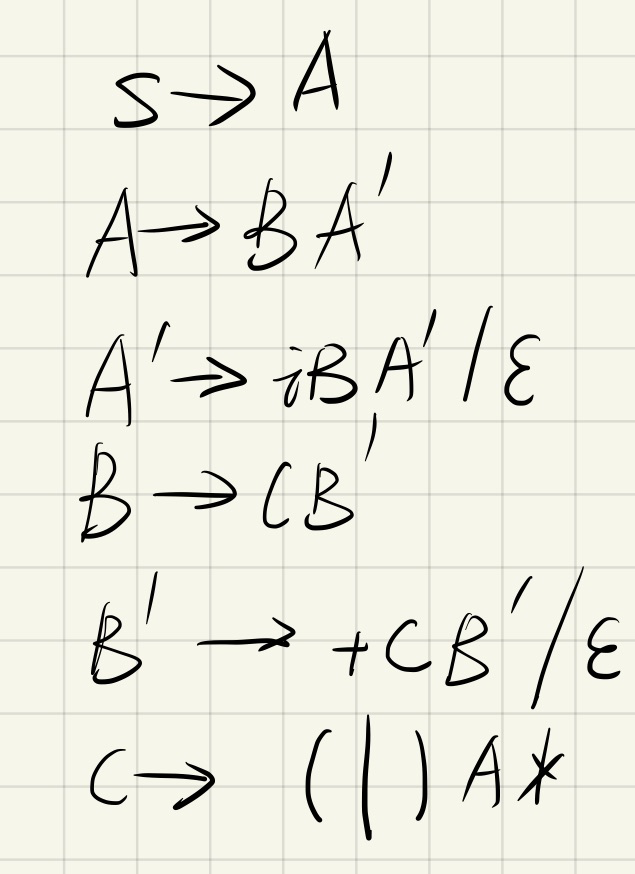 S → A
A → BA'
A' → iBA' / ε
B → CB'
B' → +CB' / ε
C → ( | ) A *